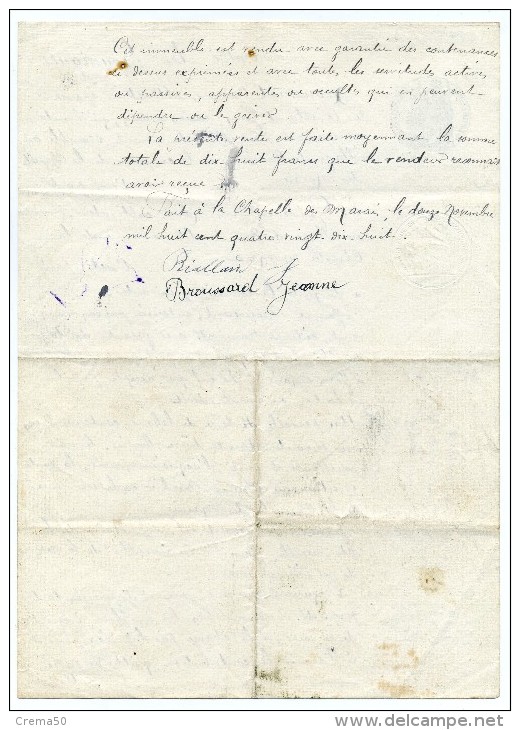 Cet immeuble est vendu avec garantie des contenances
ci dessus exprimées et avec toutes les servitudes actives,
ou passives, apparentes ou occultes qui en peuvent
dépendre ou le grever
La présente vente est faite moyennant la somme
totale de dix huit francs que le vendeur reconnait
avoir reçue.
Fait à la Chapelle des Marais, le douze Novembre
mil huit cent quatre vingt dix huit.
Broussard Jeanne
Crema50
www.delcampe.net